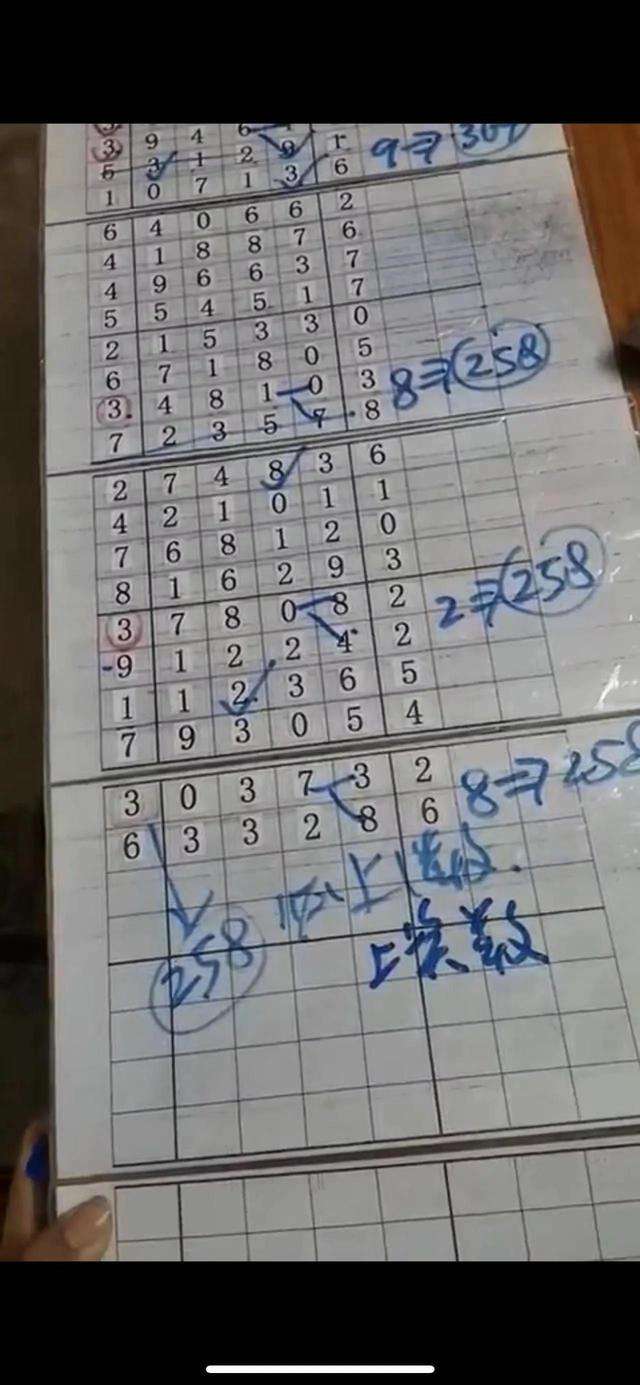 3 9 4 6
5 3 1 2 9 r 9⇒307
1 0 7 1 3 6
6 4 0 6 6 2
4 1 8 8 7 6
4 9 6 6 3 7
5 5 4 5 1 7
2 1 5 3 3 0
6 7 1 8 0 5
3 4 8 1 0 3 8⇒258
7 2 3 5 7 8
2 7 4 8 3 6
4 2 1 0 1 1
7 6 8 1 2 0
8 1 6 2 9 3
3 7 8 0 8 2 2⇒258
9 1 2 2 4 2
1 1 2 3 6 5
7 9 3 0 5 4
3 0 3 7 3 2 8⇒258
6 3 3 2 8 6
258